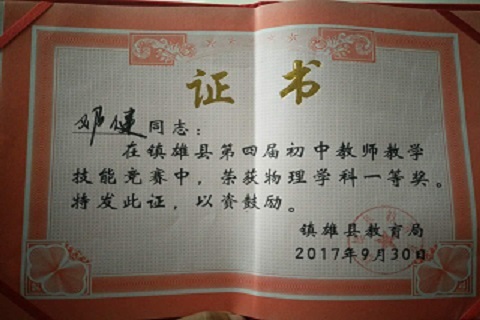 证书
同志：
在镇雄县第四届初中教师教学
技能竞赛中，荣获物理学科一等奖。
特发此证，以资鼓励。
镇雄县教育局
2017年9月30日